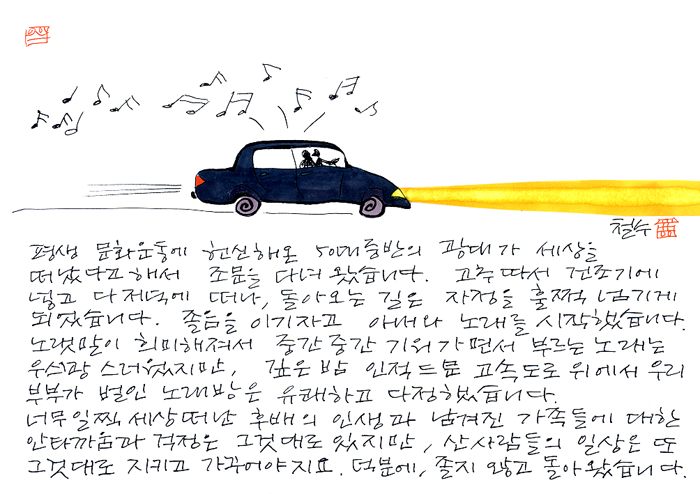 철수
평생 문화운동에 헌신해온 50대 중반의 광대가 세상을
떠났다고 해서 조문을 다녀 왔습니다. 고추 따서 건조기에
넣고 다 저녁에 떠나, 돌아오는 길은 자정을 훌쩍 넘기게
되었습니다. 졸음을 이기자고 아내와 노래를 시작했습니다.
노랫말이 희미해져서 중간중간 기워 가면서 부르는 노래는
우스꽝스러웠지만, 깊은 밤 인적 드문 고속도로 위에서 우리
부부가 벌인 노래방은 유쾌하고 다정했습니다.
너무 일찍 세상 떠난 후배의 인생과 남겨진 가족들에 대한
안타까움과 걱정은 그것대로 있지만, 산사람들의 일상은 또
그것대로 지키고 가꾸어야지요. 덕분에, 졸지 않고 돌아왔습니다.